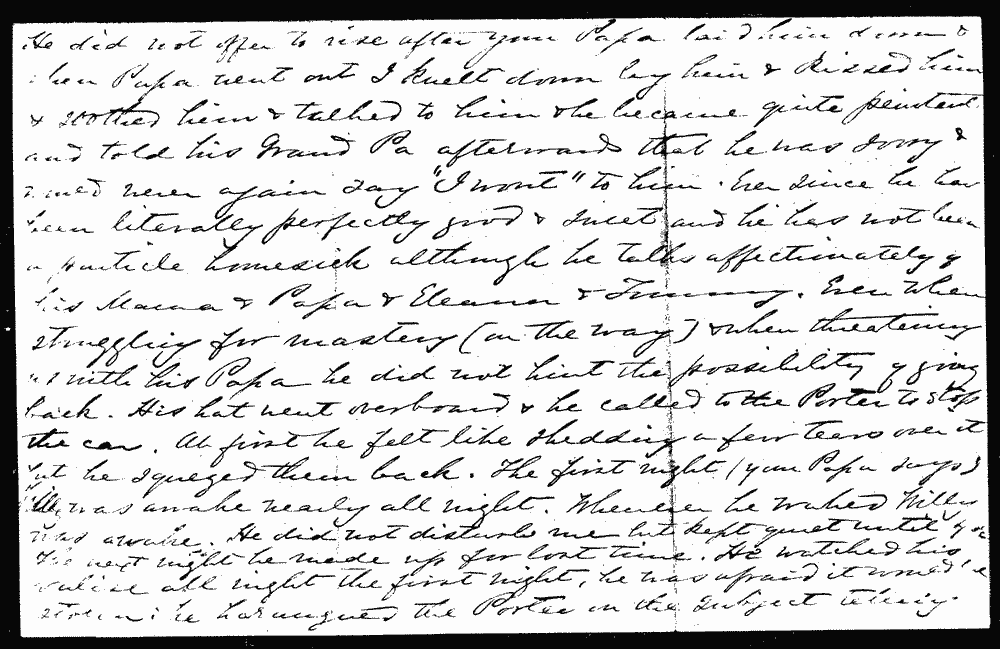 He did not offer to rise after your Papa laid him down &
when Papa went out I knelt down by him & kissed him
& soothed him & talked to him & he became quite penitent
and told his Grand Pa afterwards that he was sorry &
would never again say "I wont" to him. Ever since he has
been literally perfectly good & sweet and he has not been
a particle homesick although he talks affectionately of
his Mama & Papa & Eleanor & Jimmy. Even when
struggling for mastery (on the way) & when threatening
us with his Papa he did not hint the possibility of going
back. His hat went overboard & he called to the Porter to stop
the car. At first he felt like shedding a few tears over it
but he squeezed them back. The first night (your Papa says)
Willy was awake nearly all night. Whenever he waked Willy
was awake. He did not disturb me but kept quiet until
The next night he made up for lost time. He watched his
valise all night the first night, he was afraid it would be
stolen: he harangued the Porter on the subject